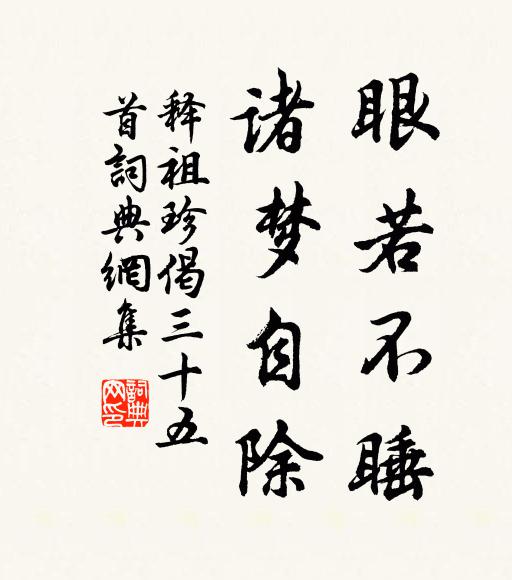 眼若不睡
诸梦自除
释祖珍偈三十五
首詞典網集
詞典网印